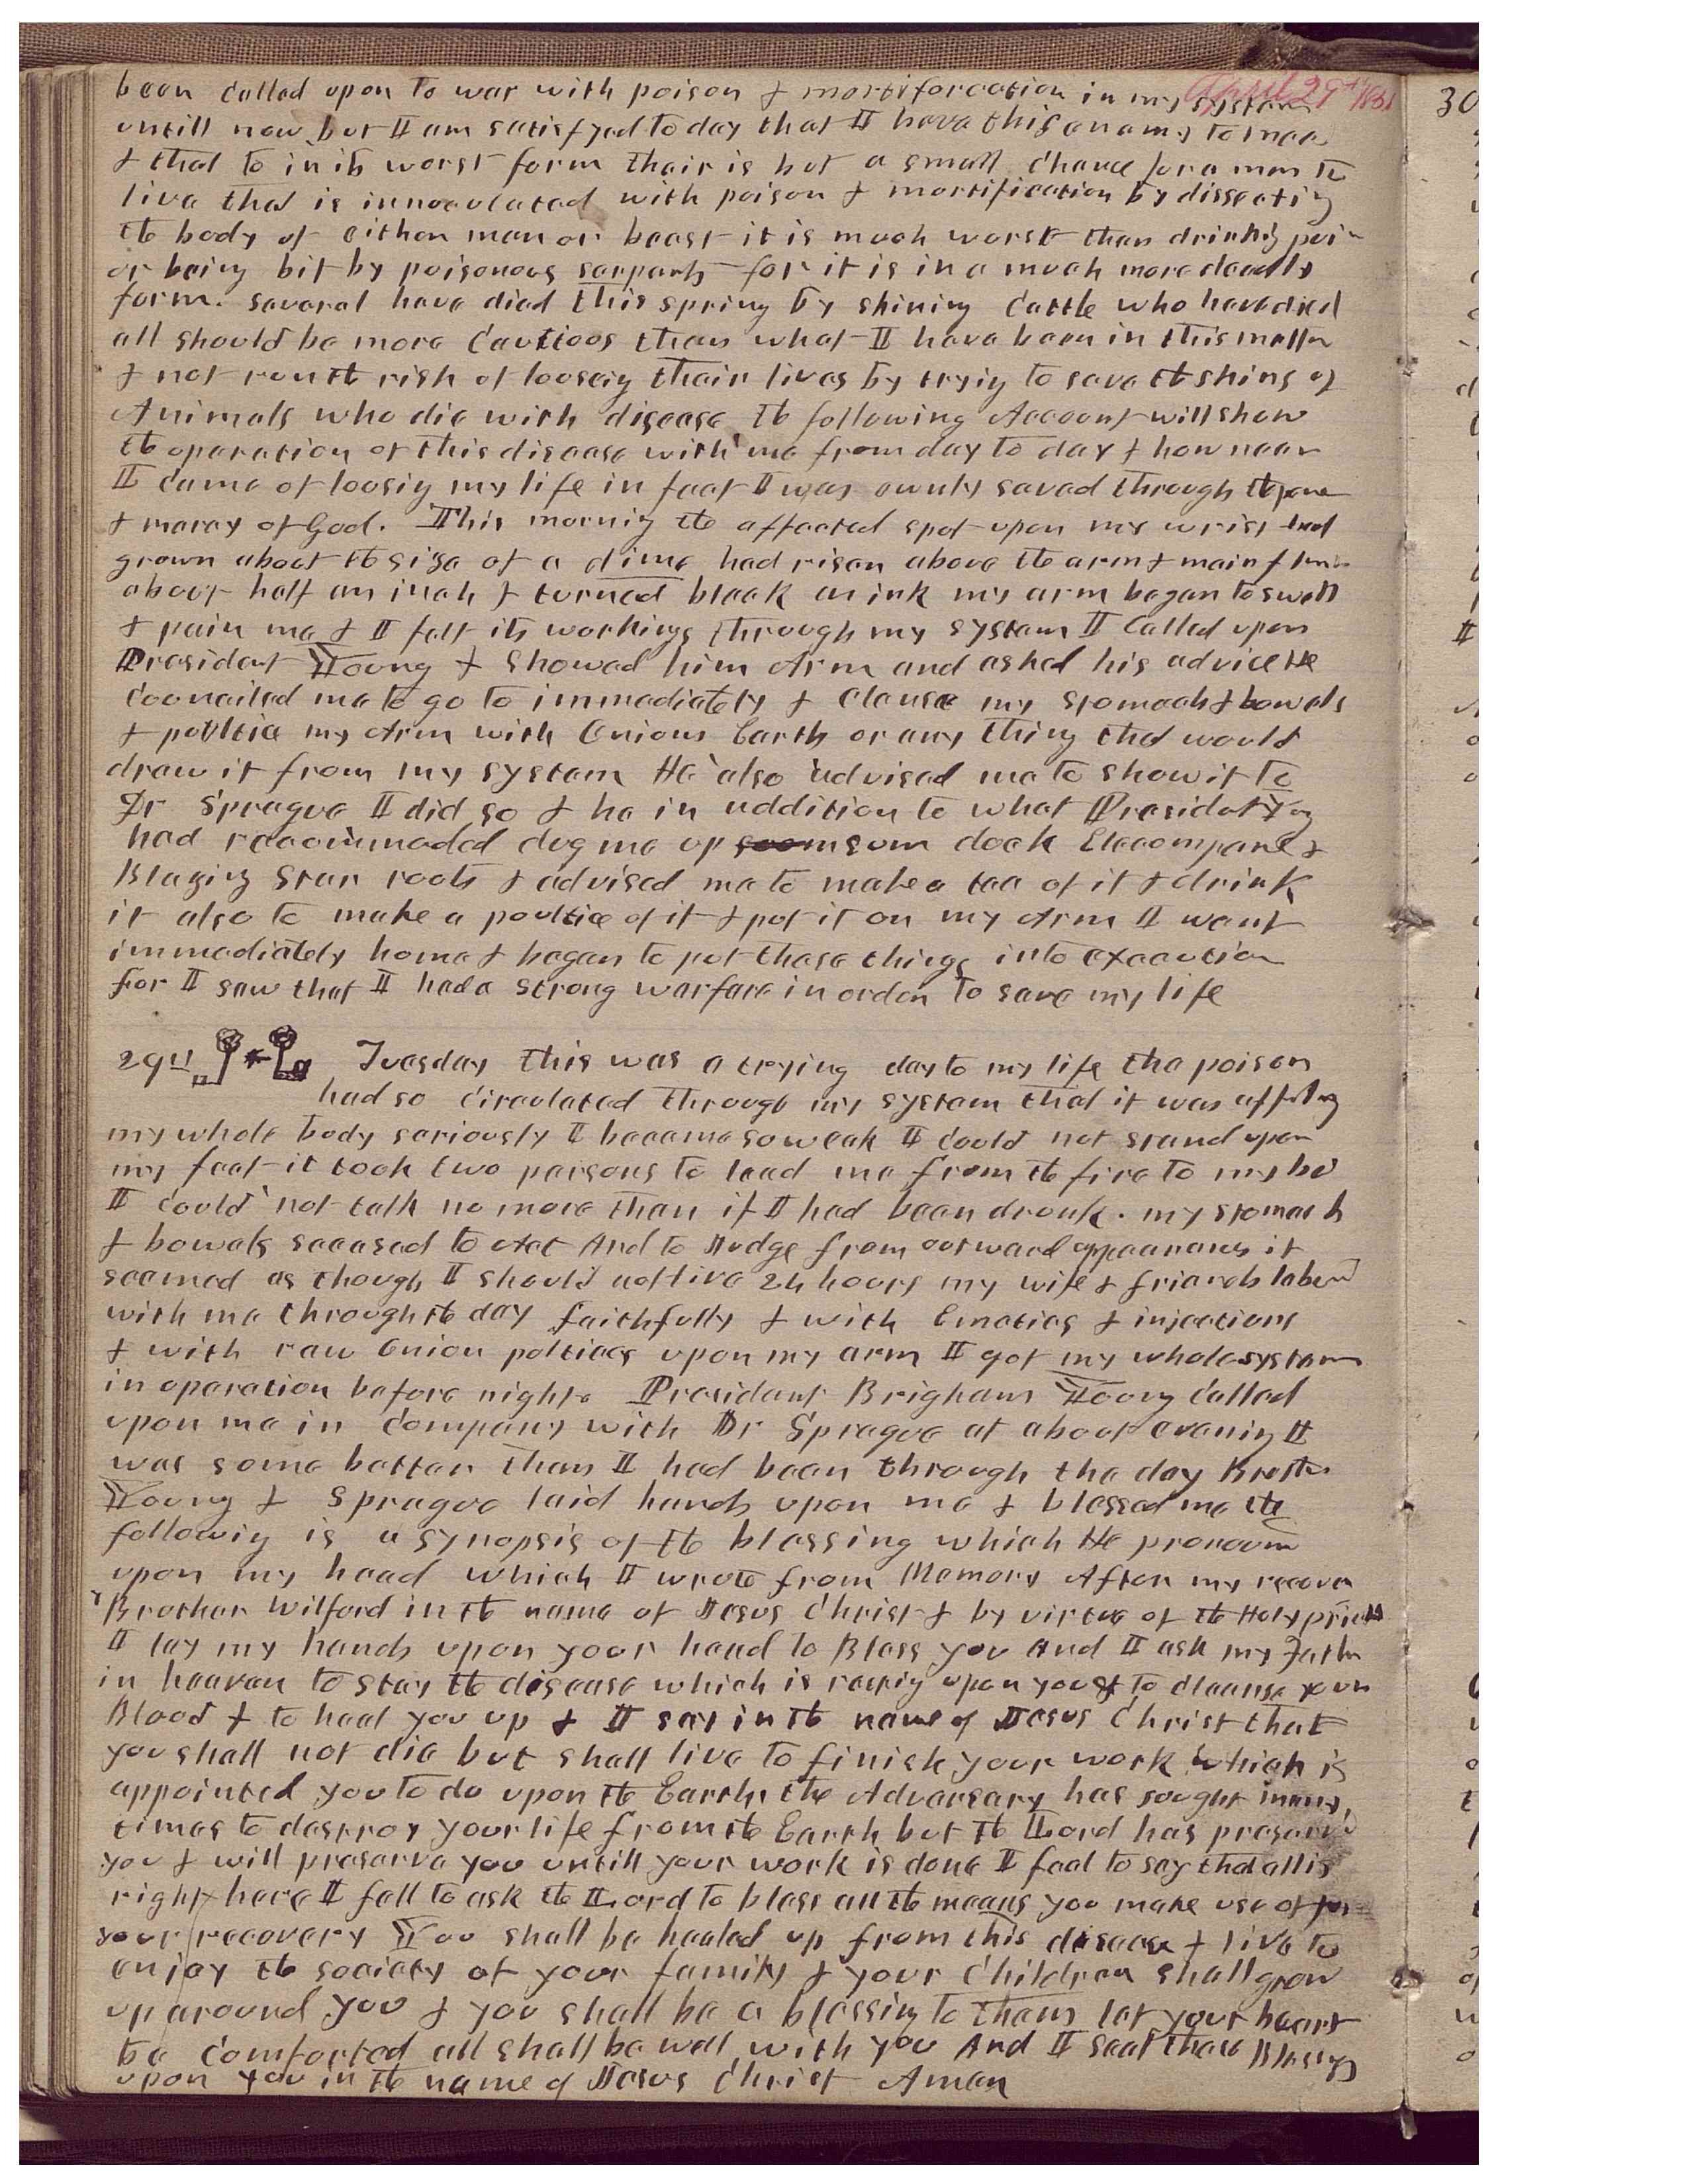 April 29th 1856
been called upon to war with poison & mortiforcation in my system
untill now but I am satisfyed to day that I have this enemy to meet
& that to in its worst form thair is but a small chance for a man to
live that is innoculated with poison & mortification by dissecting
the body of either man or beast it is much worse than drinking
or being bit by poisonous serpants for it is in a much more deadly
form. several have died this spring by skining cattle who have died
all should be more Cautioos than what I have been in this matter
& not run the risk of looseing thair lives by trying to save the skins of
Animals who die with disease the following Account will show
the operation of this disease with me from day to day & how near
I came of loosing my life in fact I was ownly saved through the power
& mercy of God. This morning the affected spot upon my wrist had
grown about the size of a dime had risen above the arm & main flesh
about half an inch & turned black as ink my arm began to swell
& pain me & I felt its workings through my system I called upon
President Young & showed him Arm and asked his advice He
counciled me to go to immediately & clense my stomach & bowels
& poultice my Arm with Onions Earth or any thing that would
draw it from my system He also advised me to show it to
Dr Sprague I did so & he in addition to what President Young
had recommended dug me up som sum dock Elecompane &
Blazing Star roots & advised me to make a tea of it & drink
it also to make a poultice of it & put it on my Arm I went
immediately home & began to put these things into execution
for I saw that I had a strong warfare in order to save my life
29th Tuesday this was a trying day to my life the poison
had so circulated through my system that it was affecting
my whole body seriously I became so weak I could not stand upon
my feet it took two persons to lead me from the fire to my bed
I could not talk no more than if I had been drunk. my stomach
& bowels seeased to Act And to Judge from outward appearances it
seemed as though I should not live 24 hours my wife & friends labored
with me through the day faithfully & with Emetics & injections
& with raw Onion poltices upon my arm I got my whole system
in operation before night. President Brigham Young called
upon me in Company with Dr Sprague at about evening I
was some better than I had been through the day Brother
Young & Sprague laid hands upon me & blessed me the
following is a synopsis of the blessing which He pronounced
upon my head which I wrote from Memory After my recovery
Brother Wilford in the name of Jesus Christ & by virtue of the Holy priesthood
I lay my hands upon your head to Bless you And I ask my Father
in heaven to stay the disease which is preying upon you & to cleanse your
Blood & to heal you up & I say in the name of Jesus Christ that
you shall not die but shall live to finish your work which is
appointed you to do upon the Earth, the Adversary has sought many
times to destroy your life from the Earth but the Lord has preserved
you & will preserve you untill your work is done I feel to say that all is
right here I fell to ask the Lord to bless all the means you make use of for
your recovery You shall be healed up from this disease & live to
enjoy the society of your family & your Children shall grow
up around you & you shall be a blessing to them let your heart
be comforted all shall be well with you And I seal these Blessings
upon you in the name of Jesus Christ Amen